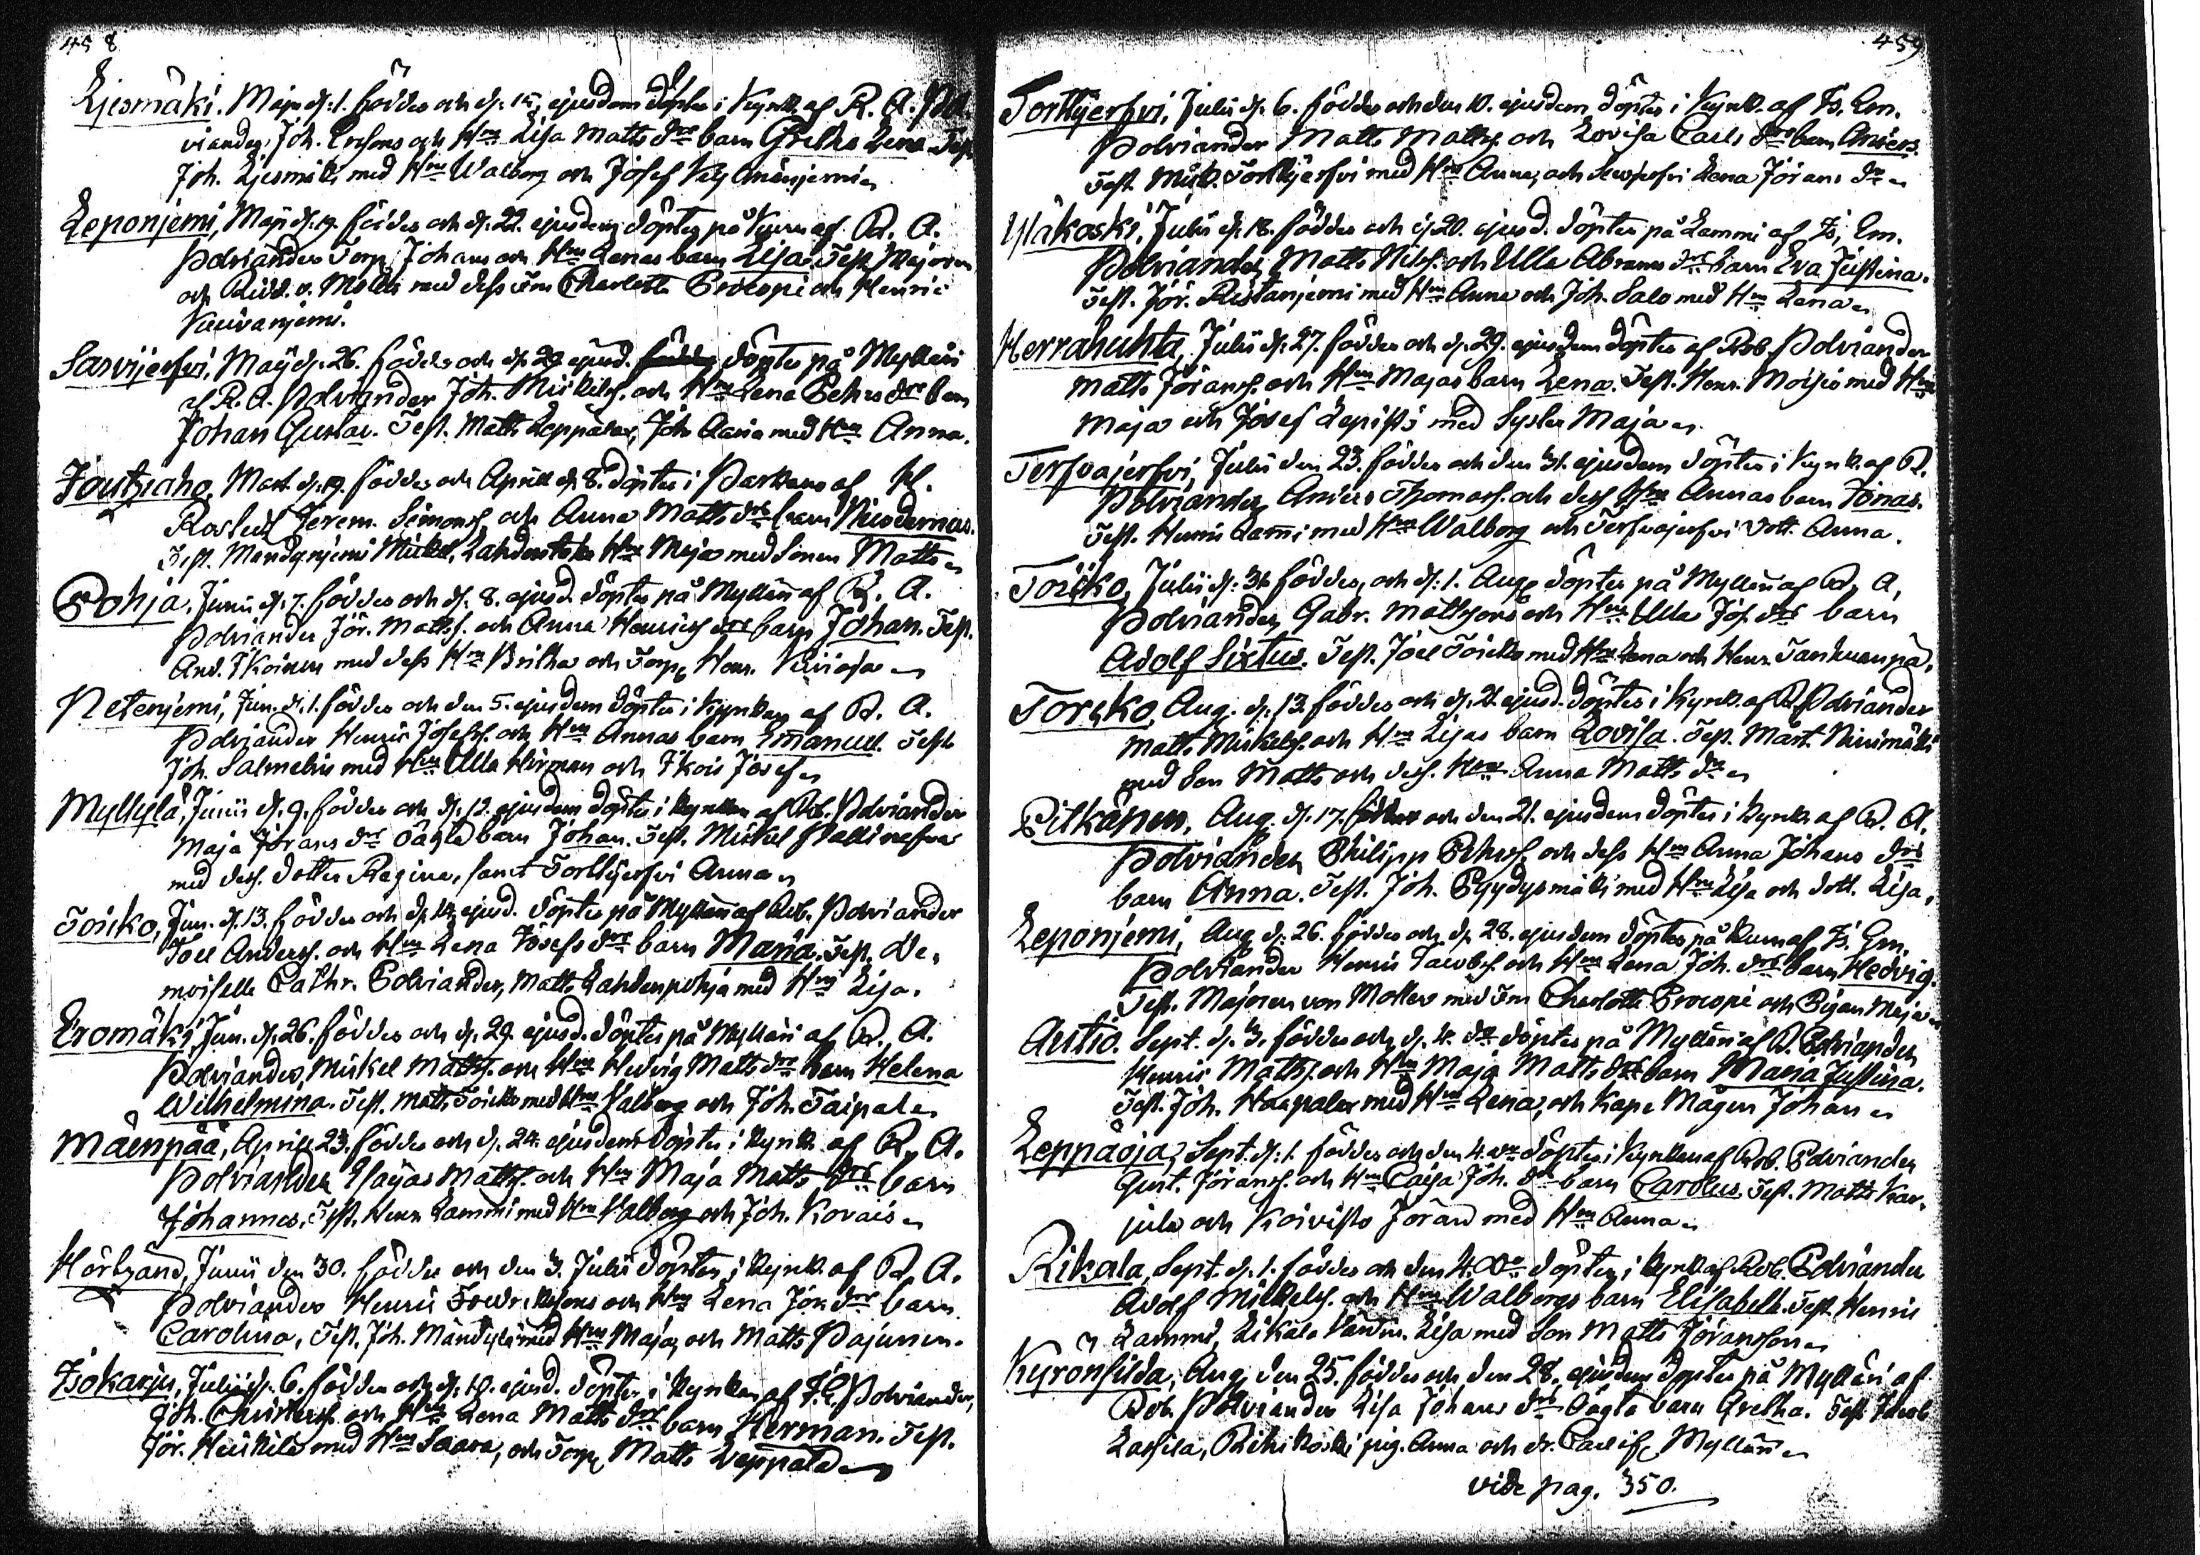 458
Ljesmäki. Maji d. 1. föddes och d. 15. ejusdem döptes i Kyrk. af R. A. Pol-
viander. Joh. Ersons och Hru Lisa Matts dr barn Gretha Lena. Test.
Joh. Ljesmäki med Hru Walborg och Josef
Leponjemi, Maji d. 19. föddes och d. 22. ejusdem döptes på Kuru af R. A.
Polviander Torp. Johans och Hru Lenas barn Lisa. Test. Majoren
och Ridd. v. Moller med dess Fru Charlotta Procopé och Henric
Kuivanjemi.
Sarvijerfvi, Maij d. 26. föddes och d. 29 ejusd. döptes på Mylläri
af R. A. Polviander Joh. Mickels. och Hru Lena Pehrs dr barn
Johan Gustav. Test. Matts Leppälax, Joh. med Hru Anna.
Joutziaho, Mart. d. 19. föddes och Aprill d. 8. döptes i Parkano af H.
Roslein Jerem. Simons. och Anna Matts dr barn Nicodemus.
Test. Mandanjemi Mickel, Hru Maja med Sonen Matts
Pohja, Junii d. 7. föddes och d. 8. ejusd. döptes på Mylläri af R. A.
Polviander Jör. Matts. och Anna Henrics dr barn Johan. Test.
And. Ikoinen med dess Hru Britha och Torp. Henr.
Netenjemi, Jun. d. 1. föddes och den 5. ejusdem döptes i Kyrkan af R. A.
Polviander Henric Josefs. och Hru Annas barn Emanuel. Test.
Joh. Salmelin med Hru Ulla Hirman och Ikois Josef
Myllylä, Junii d. 9. föddes och d. 12. ejusdem döptes i Kyrkan af Rob. Polviander
Maja Jörans dr oägta barn Johan. Test. Mickel
med dess dotter Regina, samt Torttijerfvi Anna
Toriko, Jun. d. 13. föddes och d. 14. ejusd. döptes på Mylläri af Rob. Polviander
Joel Anders. och Hru Lena Josefs dr barn Maria. Test. De-
moiselle Cathr. Polviander, Matts Lahdenpohja med Hru Lisa.
Eromäki, Jun. d. 26. föddes och d. 29. ejusd. döptes på Mylläri af R. A.
Polviander, Mickel Matts. och Hru Hedvig Matts dr barn Helena
Wilhelmina. Test. Matts Toricko med Hru Valborg och Joh. Taipale
Mäenpää, April 23. föddes och d. 24. ejusdem döptes i Kyrk. af R. A.
Polviander Matts. och Hru Maja Matts dr barn
Johannes. Test. Henr. Lammi med Hru Valborg och Joh. Kovais
Junii den 30. föddes och den 3. Julii döptes i Kyrk. af R. A.
Polviander Henric Fredricksons och Hru Lena Jör. dr barn
Carolina, Test. Joh. Mändylä med Hru Maja, och Matts Pajunen.
Isokarju, Julii d. 6. föddes och d. 10. ejusd. döptes i Kyrkan af I. E. Polviander,
Joh. Christers. och Hru Lena Matts dr barn Herman. Test.
Jör. Heickilä med Hru Saara, och Torp. Matts Leppälä
459
Torttijerfvi, Julii d. 6. föddes och den 10. ejusdem döptes i Kyrk. af Is. Em.
Polviander Matts Matts. och Lovisa Carls dr barn Anders.
Test. Mick. Torttijerfvi med Hru Anna, och Lena Jörans dr
Yläkoski, Julii d. 18. föddes och d. 20. ejusd. döptes på Lammi af Is. Em.
Polviander, Matts Nils. och Ulla Abrams dr barn Eva Justina.
Test. Jör. Ristanjemi med Hru Anna och Joh. Salo med Hru Lena
Herrahuhta, Julii d. 27. föddes och d. 29. ejusdem döptes af Rob. Polviander
Matts Jörans. och Hru Majas barn Lena. Test. Henr. Moisio med Hru
Maja och Josef Lepistö med Syster Maja
Terfvajerfvi, Julii den 23. föddes och den 31. ejusdem döptes i Kyrk. af R.
Polviander Anders Thomas. och dess Hru Annas barn Jonas.
Test. Henric Lammi med Hru Walborg och Terfvajerfvi dott. Anna.
Toricko, Julii d. 31. föddes, och d. 1. Aug. döptes på Mylläri af R. A.
Polviander, Gabr. Mattsons och Hru Ulla Jos. dr barn
Adolf Sixtus. Test. Joel Toricko med Hru Lena och Henr. Tankuanpä.
Toricko, Aug. d. 13. föddes och d. 21. ejusd. döptes i Kyrk. af R. Polviander
Matts Mickels. och Hru Lisas barn Lovisa. Test. Mart. Niinimäki
med Son Matts och dess. Hru Anna Matts dr
Pitkänen, Aug. d. 17. föddes och den 21. ejusdem döptes i Kyrk. af R. A.
Polviander Philipp Pehrs. och dess Hru Anna Johans dr
barn Anna. Test. Joh. Pyydysmäki med Hru Lisa och dott. Lisa.
Leponjemi, Aug. d. 26. föddes och d. 28. ejusdem döptes på Kuru af Is. Em.
Polviander Henric Jacobs. och Hru Lena Joh. dr barn Hedvig.
Test. Majoren von Moller med Fru Charlotta Procopé och Pigan Maja
Autio. Sept. d. 3. föddes och d. 4. do döptes på Mylläri af R. Polviander
Henric Matts. och Hru Maja Matts dr barn Maria Justina.
Test. Joh. Haapalax med Hru Lena, och Kape Mågen Johan
Leppäoja, Sept. d. 1. föddes och den 4. do döptes i Kyrkan af Rob. Polviander
Gust. Jörans. och Hru Caisa Joh. dr barn Carolus. Test. Matts Kar-
jula och Koivisto Jöran med Hru Anna
Rikala, Sept. d. 1. föddes och den 4. do döptes i Kyrk. af Rob. Polviander
Adolf Mickels. och Hru Walborgs barn Elisabeth. Test. Henric
Lammi, Likala Lisa med Son Matts Jöransson
Kyrönsilda, Aug. den 25. föddes och den 28. ejusdem döptes på Mylläri af
Rob. Polviander Lisa Johans dr oägta barn Gretha. Test. Jacob
Lassila, Rihikoski pig. Anna och dr. Carl if. Mylläri
vide pag. 350.